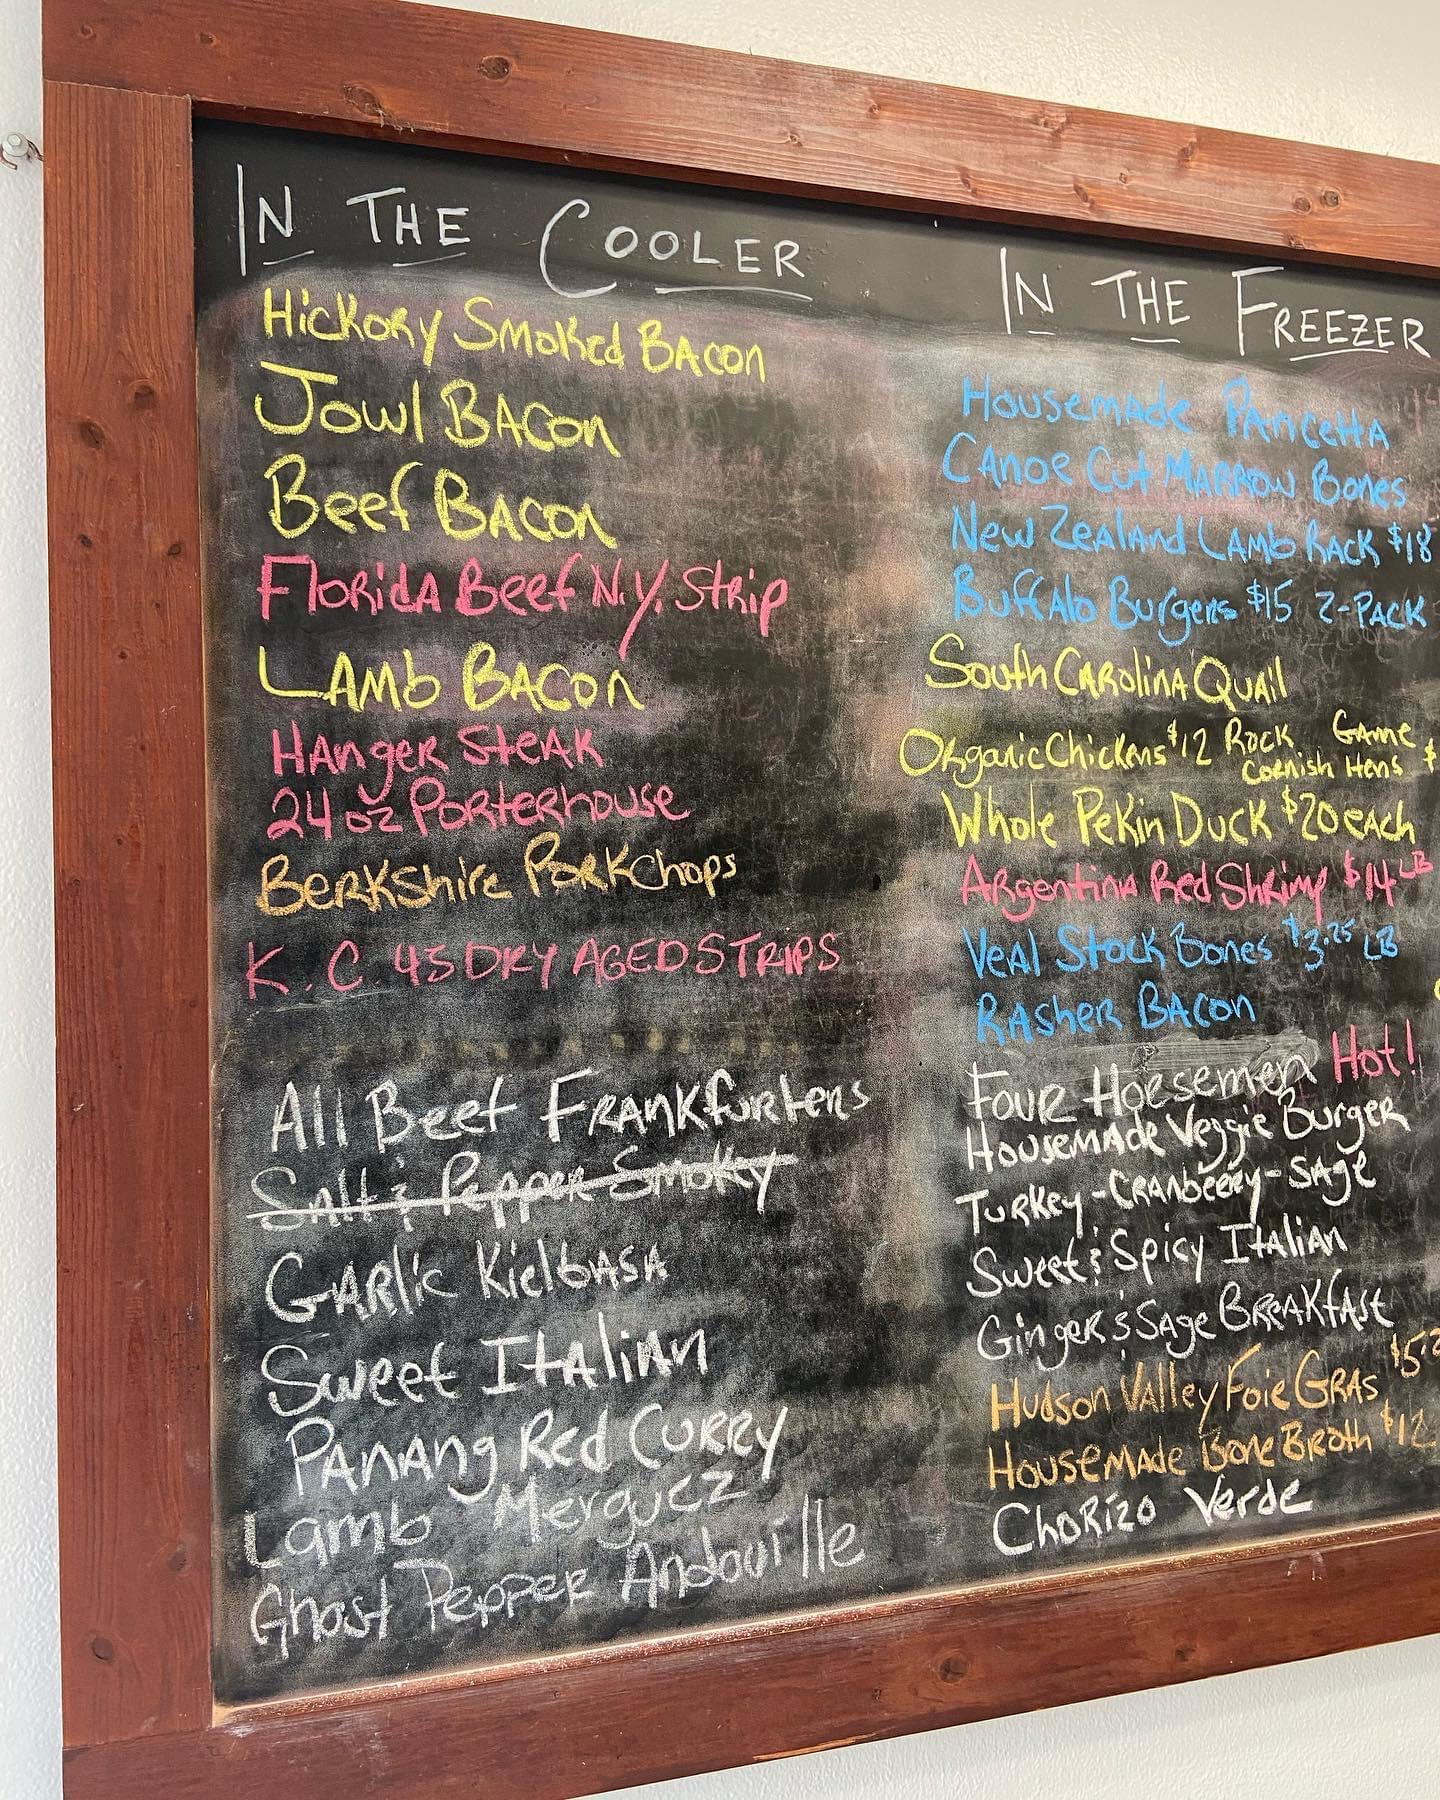 IN THE COOLER
Hickory Smoked Bacon
Jowl Bacon
Beef Bacon
Florida Beef N.Y. Strip
Lamb Bacon
Hanger Steak
24 oz Porterhouse
Berkshire Porkchops
K.C. 45 DRY AGED STRIPS
All Beef Frankfurters
Salt & Pepper Smoky
Garlic Kielbasa
Sweet Italian
Panang Red Curry
Lamb Merguez
Ghost Pepper Andouille
IN THE FREEZER
Housemade Pancetta
Canoe Cut Marrow Bones
New Zealand Lamb Rack $18
Buffalo Burgers $15 2-Pack
South Carolina Quail
Organic Chickens $12 Rock Game Cornish Hens $
Whole Pekin Duck $20 each
Argentina Red Shrimp $14 LB
Veal Stock Bones $3.25 LB
Rasher Bacon
Four Horsemen Hot!
Housemade Veggie Burger
Turkey-Cranbeery-Sage
Sweet & Spicy Italian
Ginger & Sage Breakfast
Hudson Valley Foie Gras
Housemade Bone Broth $12
Chorizo Verde